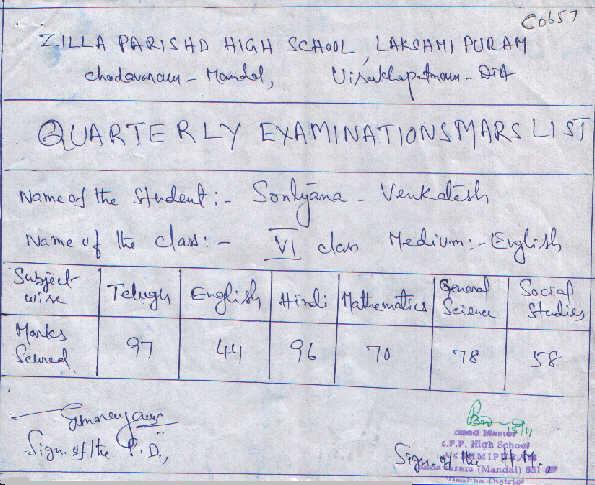 C0657
ZILLA PARISHD HIGH SCHOOL, LAKSHMIPURAM
Chodavaram - Mandal, Visakhapatnam - Dit
QUARTERLY EXAMINATIONS MARS LIST
Name of the Student :- Sontyana - Venkatesh
Name of the class :- VI class Medium :- English
Subject wise Telugu English Hindi Mathematics General Science Social Studies
Marks Scured 97 44 96 70 78 58
Sign. of the P.D.,
Sign. of the H.M.
High School
(Mandal)